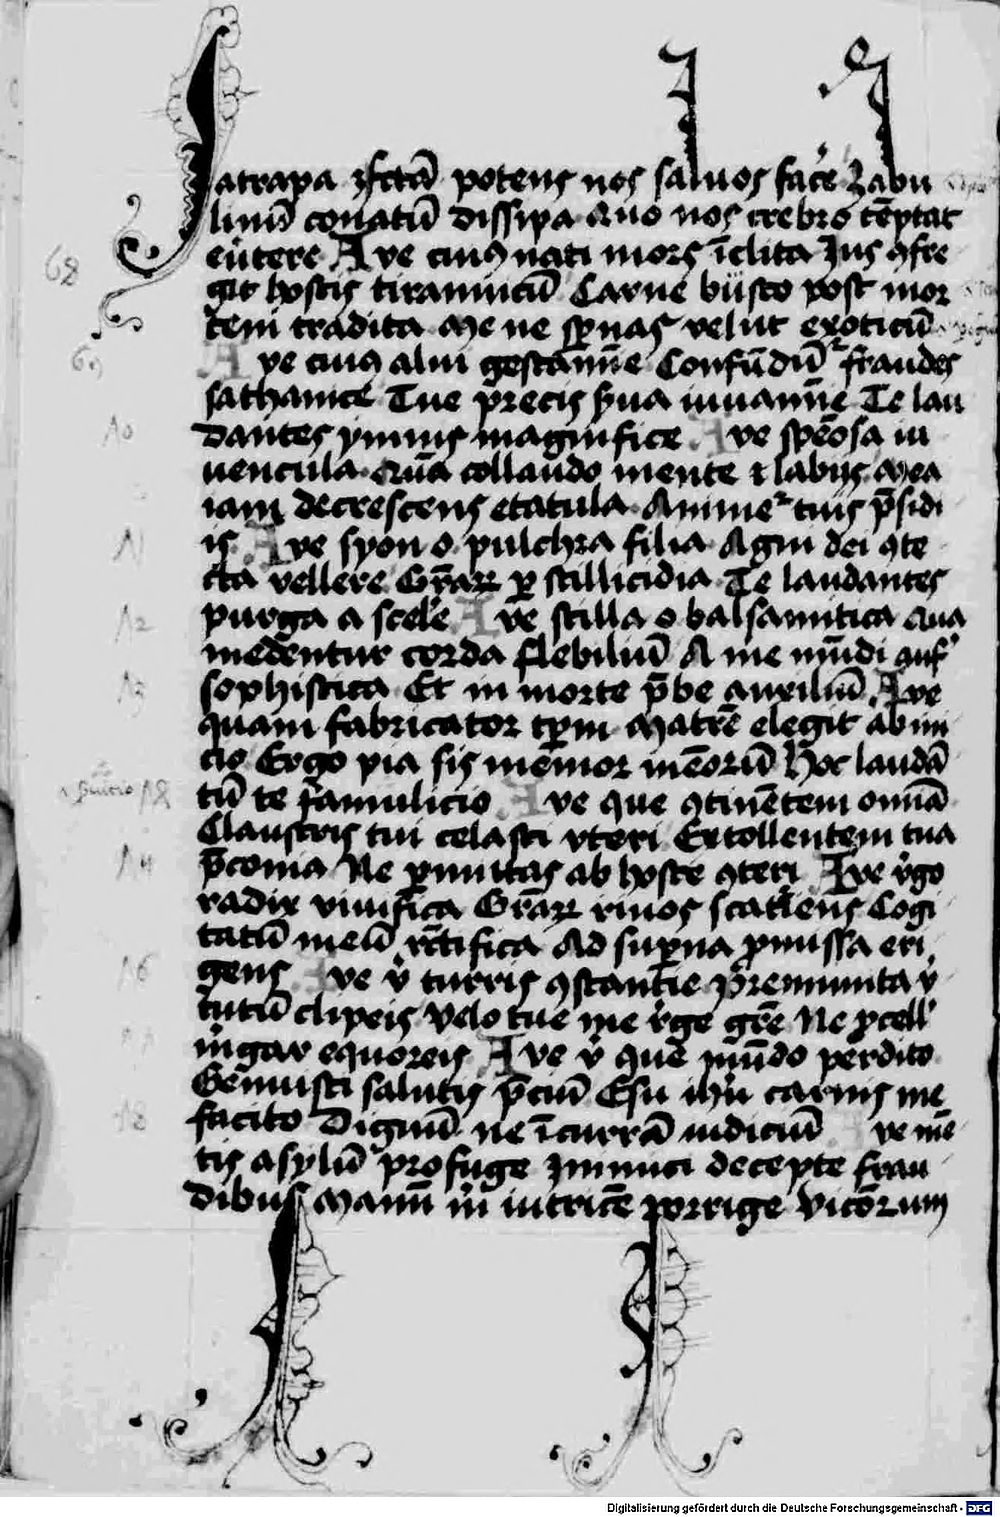 Satrapa potens nos saluos facere Zabu
linū conatū dissipa Quo nos crebro tēptat
euertere Aue cuiꝰ nati mors īclita Ius ꝯfre
git hostis tirannicū Carne busto post mor
tem tradita Me ne spernas velut exoticū
Aue cuiꝰ alui Confūdūtur fraudes
sathanice Tue precis Te lau
dantes ymnis magnifice Aue speōsa iu
uencula Quā collaudo mente ⁊ labijs Mea
iam decrescens etatula tuis p̄sidi
is Aue syon o pulchra filia Agni dei ꝯte
cta vellere Gr̄aꝝ ꝑ stillicidia Te laudantes
purga a scele Aue stilla o balsamitica Qua
medentur corda flebiliū A me mūdi auf
sophistica Et in morte p̄be auxiliū Aue
quam fabricator Matrē elegit ab ini
cio Ergo pia sis memor meōrū Hoc laudā
tū te famulicio Aue que ꝯtinētem omīa
Claustris tui celasti vteri Extollentem tua
p̄conia Ne ꝑmittas ab hoste ꝯteri Aue v̄go
radix viuifica Gr̄aꝝ riuos scatiens Cogi
tatū meū rc̄tifica Ad suꝑna ꝓmissa eri
gens Aue v̄ turris ꝯstantie Premunita v̄
tutū clipeis Velo tue me v̄ge gr̄e Ne ꝓcell
mgar equoreis Aue v̄ que mūdo perdito
Genuisti salutis p̄ciū Esu ihū carnis me
facito Dignū ne īcurrā iudiciū Aue mē
tis asylū profuge decepte frau
dibus Manū porrige Vicōrum
68
69
Digitalisierung gefördert durch die Deutsche Forschungsgemeinschaft - DFG